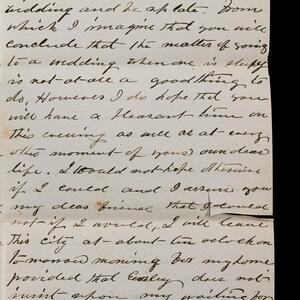 wedding and be up late. From
which I imagine that you will
conclude that the matter of going
to a wedding when one is sleepy
is not at all a good thing to
do. However I do hope that you
will have a pleasant time on
this evening as well as at every
other moment of your own dear
life. I would not hope otherwise
if I could and I assure you
my dear friend that I could
not if I would, I will leave
This City at about ten oclock on
to-morrow morning for my home
provided that does not
insist upon my waiting for